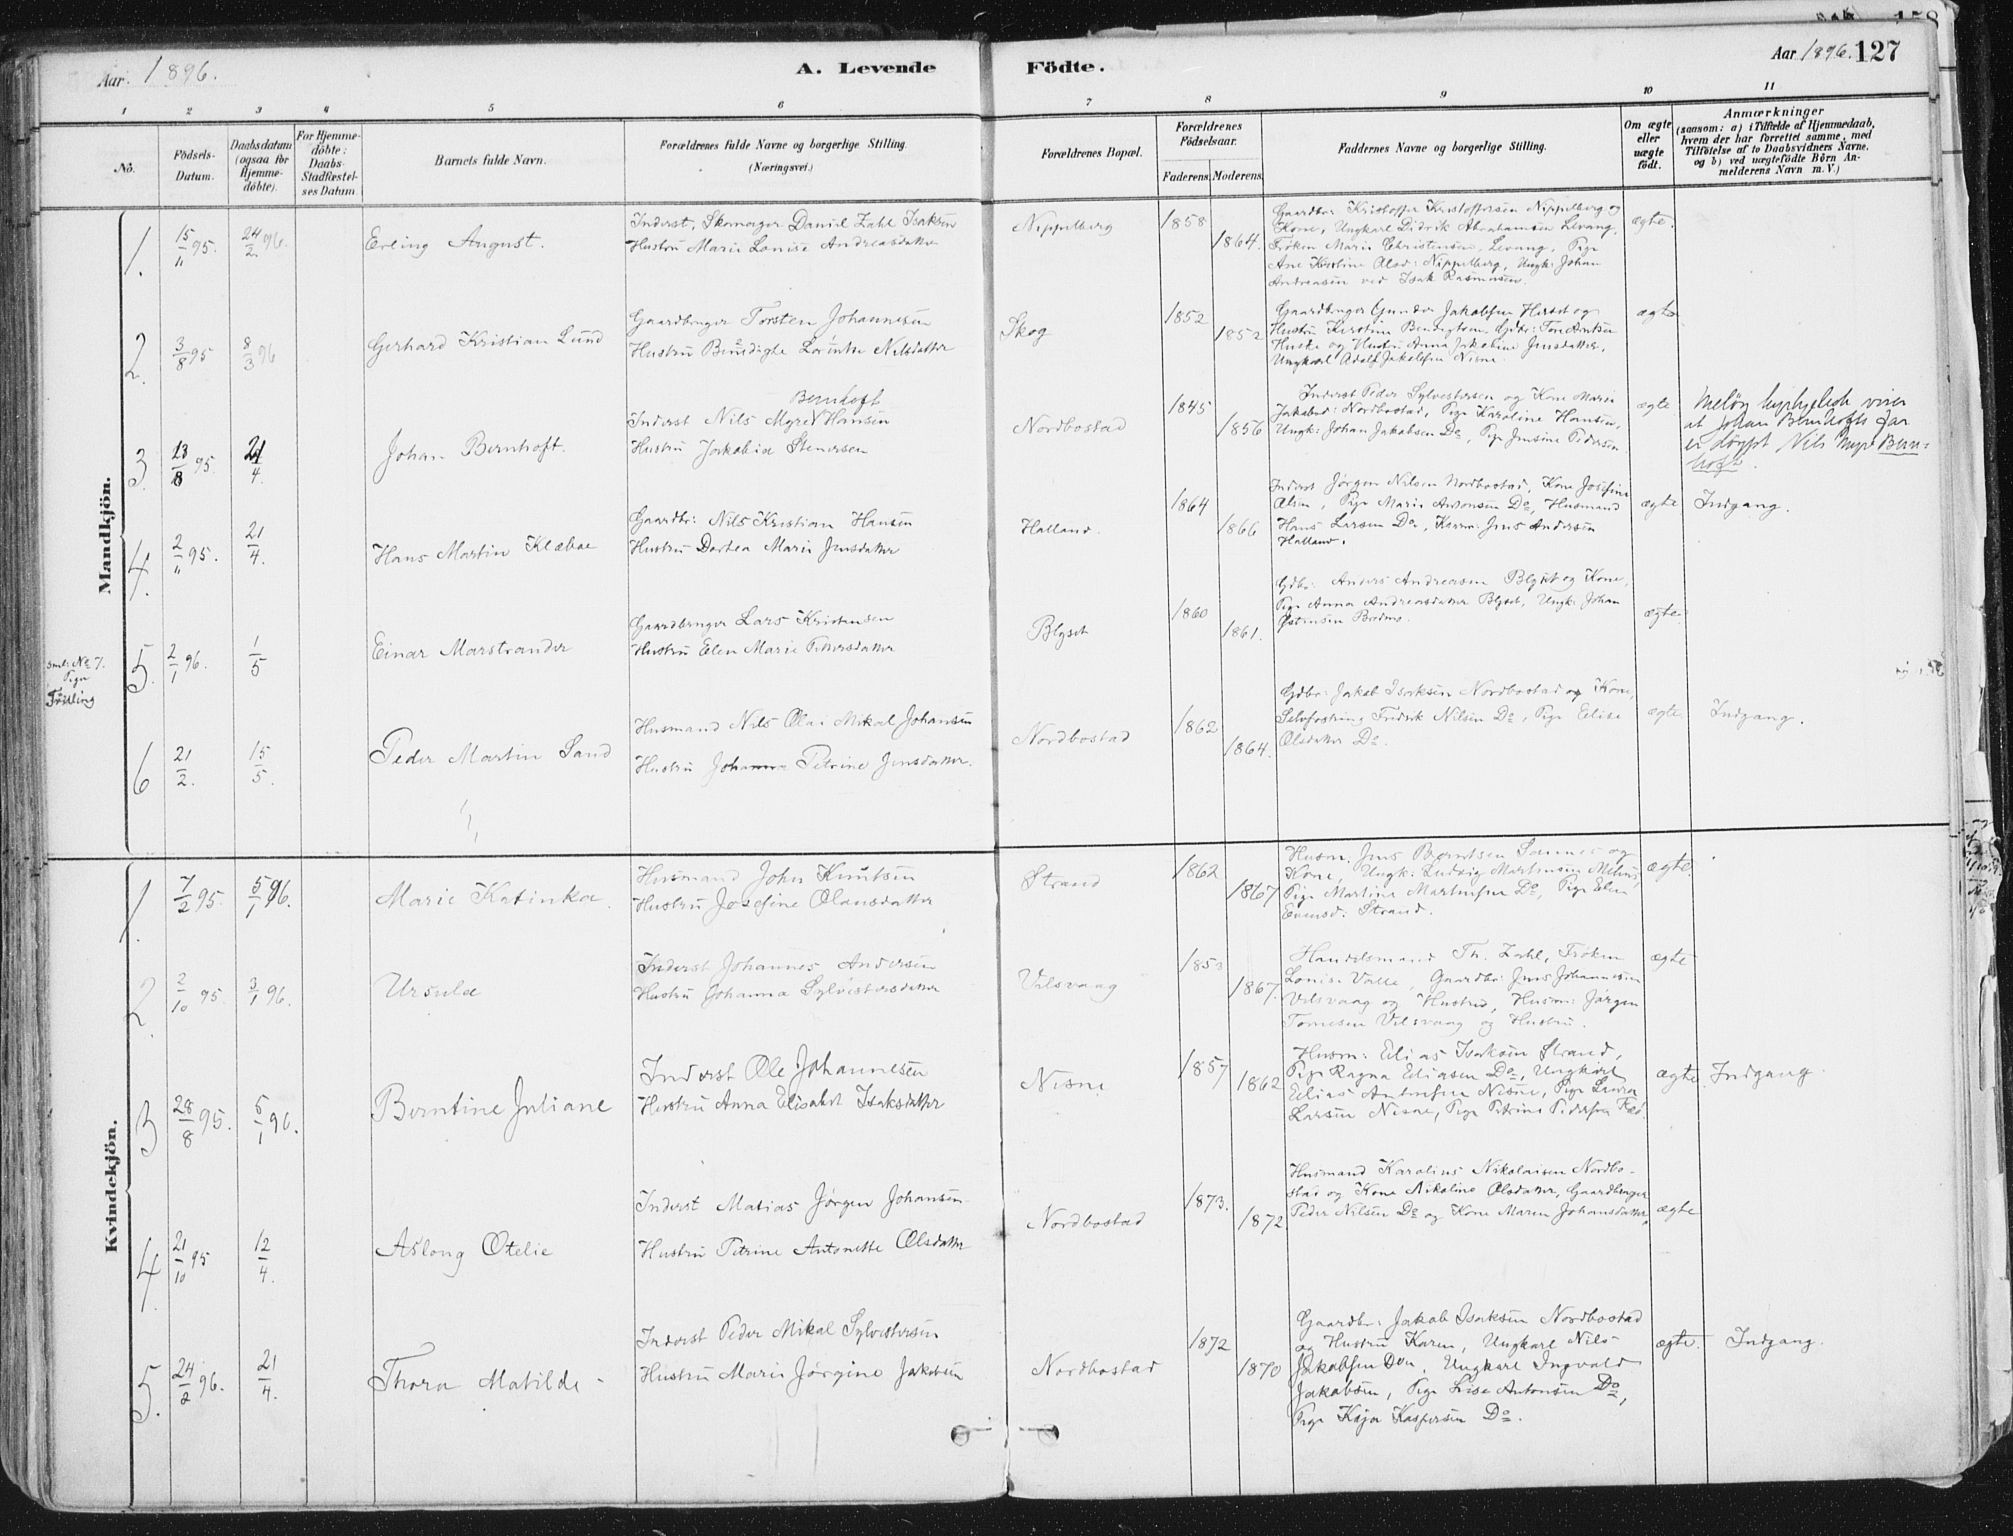 Aar 1896.
A. Levende Födte.
Aar 1896. 127
1 2 3 4 5 6 7 8 9 10 11
No.
Födsels-Datum.
Daabsdatum (ogsaa for Hjemme-döbte).
For Hjemme-döbte: Daabs-Stadfæstel-ses Datum.
Barnets fulde Navn.
Forældrenes fulde Navne og borgerlige Stilling. (Næringsvei.)
Forældrenes Bopæl.
Forældrenes Födselsaar.
Faderens. Moderens.
Faddernes Navne og borgerlige Stilling.
Om ægte eller uægte födt.
Anmærkninger
(saasom: a) i Tilfælde af Hjemmedaab, hvem der har forrettet samme, med Tilföielse af to Daabsvidners Navne. og b) ved uægtefödte Börn An-melderens Navn m. V.)
Mandkjön.
1. 15/11 95. 24/2 96. Erling August.
Inderst, Skomager Daniel Zahl Isaksen
Hustru Marie Lovise Andreasdatter
Nippelberg 1858 1864.
Gaardbr: Kristoffer Kristoffersen Nippelberg og
Kone, Ungkarl Didrik Abrahamsen Levang,
Frøken Marie Christensen, Levang, Pige
Ane Kristine Olsd: Nippelberg, Ungk: Johan
Andreasen ved Isak Rasmussen.
ægte.
2. 3/8 95 8/3 96 Gerhard Kristian Lund
Gaardbruger Torsten Johannesen
Hustru Benedigte Nilsdatter
Skog 1852 1852
Gaardbruger Gunder Jakobsen og
Hustru Kirstine
Huske og Hustru Anna Jakobine Jensdatter,
Ungkarl Adolf Jakobsen Nisne.
ægte
3. 13/8 95. 21/4. Johan Bernhoft.
Bernhoft
Inderst Nils Myre Hansen
Hustru Jakobia Stenersen
Nordbostad 1845 1856
Inderst Peder Sylvestersen og Kone Marie
Jakobsd: Nordbostad, Pige Karoline Hansen,
Ungk: Johan Jakobsen Do, Pige Jensine Pedersen
ægte
Meløy viser
at Johan Bernhofts far
er døypt Nils Myre Bern-
hoft.
4. 2/11 95. 21/4. Hans Martin Klæboe
Gaardbr: Nils Kristian Hansen
Hustru Dortea Marie Jensdatter
Halland. 1864 1866
Inderst Jørgen Nilsen Nordbostad, Kone Josefine
Olsen, Pige Marie Antonsen Do, Husmand
Hans Larsen Do, Jens Andersen
Halland.
ægte Indgang.
smlr. No 7. Pige Tvilling
5. 2/1 96. 1/5 Einar Marstrander
Gaardbruger Lars Kristensen
Hustru Elen Marie Pettersdatter
Blyset 1860 1861.
Gdbr: Anders Andreasen Blyset og Kone,
Pige Anna Andreasdatter Blyset, Ungk: Johan
Østensen Bredmo.
ægte.
6 21/2. 15/5. Peder Martin Sand
Husmand Nils Olai Mikal Johansen
Hustru Johanna Petrine Jensdatter.
Nordbostad 1862 1864.
Gdbr: Jakob Isaksen Nordbostad og Kone,
Fredrik Nilsen Do, Pige Elise
Olsdatter Do.
ægte. Indgang.
Kvindekjön.
1. 7/2 95. 5/1 96. Marie Katinka.
Husmand John Knutsen
Hustru Josefine Olausdatter
Strand 1862 1867
Husm: Jens Berntsen Sannes og
Kone, Ungk: Ludvig Martinsen
Pige Martina Martinsen Do, Pige Elen
Evensd: Strand.
ægte.
2. 2/10 95 3/1 96. Ursula
Inderst Johannes Andersen
Hustru Johanna Sylvestersdatter
Valsvaag 1853 1867.
Handelsmand Th. Zahl, Frøken
Lovise Valle, Gaardbr: Jens Johannesen
Valsvaag og Hustru, Husm: Jørgen
Tomesen Valsvaag og Hustru.
ægte
3 28/8 95. 5/1 96. Berntine Juliane
Inderst Ole Johannesen
Hustru Anna Elisabet Isaksdatter
Nisne 1857 1862
Husm: Elias Isaksen Strand,
Pige Ragna Eliasen Do, Ungkarl
Elias Antonsen Nisne, Pige Laura
Larsen Nisne, Pige Petrine Pedersen
ægte. Indgang.
4. 21/10 95 12/4. Aslaug Otelie
Inderst Matias Jørgen Johansen
Hustru Petrine Antonette Olsdatter
Nordbostad 1873. 1872.
Husmand Karolius Nikolaisen Nordbo-
stad og Kone Nikoline Olsdatter, Gaardbruger
Peder Nilsen Do og Kone Maren Johansdatter,
ægte
5. 24/2 96. 21/4. Thora Matilde
Inderst Peder Mikal Sylvestersen
Hustru Marie Jørgine Jakobsen
Nordbostad 1872 1870
Gaardbr: Jakob Isaksen Nordbostad
og Hustru Karen, Ungkarl Nils
Jakobsen Do, Ungkarl Ingvald
Jakobsen, Pige Lise Antonsen Do,
Pige Kaja Kaspersen Do.
ægte. Indgang.